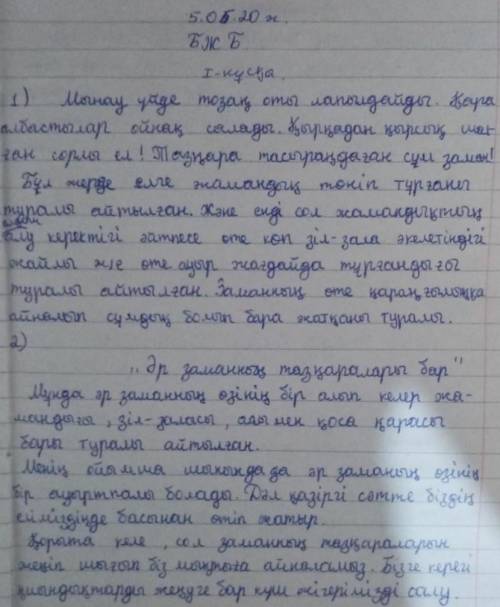 5.05.20 ж.
БЖБ
I-нұсқа.
1) Мынау үйде тозақ оты лапылдайды. Қара
албастылар ойнақ салады. Қырқадан қырсық шал-
ған сорлы ел! Тазқара тасыраңдаған сұм заман!
Бұл жерде елге жамандық төніп тұрғаны
туралы айтылған. Және енді сол жамандықтың
алдын
алу керектігі әйтпесе өте көп зіл-зала әкелетіндігі
жайлы және өте ауыр жағдайда тұрғандығы
туралы айтылған. Заманның өте қараңғылыққа
айналып сұмдық болып бара жатқаны туралы.
2)
"Әр заманның тазқаралары бар"
Мұнда әр заманның өзінің бір алып келер жа-
мандығы, зіл-заласы, ағы мен қоса қарасы
бары туралы айтылған.
Менің ойымша шынында да әр заманың өзінің
бір ауыртпалы болады. Дәл қазіргі сәтте біздің
еліміздінде басынан өтіп жатыр.
Қорыта келе, сол заманның тазқараларын
жеңіп шығып біз мықтыға айналамыз. Бізге керегі
қиындықтарды жеңуге бар күш жігерімізді салу.